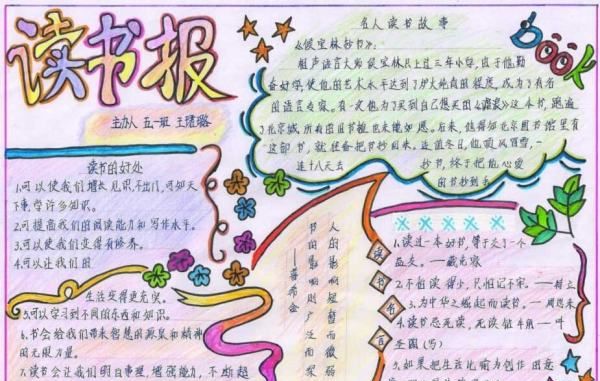 读书报
主办人 五一班 王瑨璐
名人读书故事
《侯宝林抄书》:
相声语言大师侯宝林只上过三年小学,由于他勤
奋好学,使他的艺术水平达到了炉火纯青的程度,成为了有名
的语言专家。有一次他为了买到自己想买的《谑浪》这本书,跑遍
了北京城所有的旧书摊也未能如愿。后来,他得知北京图书馆里有
这部书,就准备把书抄回来。适值冬日,他顶风冒雪,一
连十八天去
抄书,终于把他心爱
的书抄到手
BOOK
读书的好处
1.可以使我们增长见识,不出门,可知天
下事,学许多知识。
2.可提高我们的阅读能力和写作水平。
3.可以使我们变得有修养。
4.可以让我们的
生活变得更充实。
5.可以学习到不同的东西和知识。
6.书会给我们带来智慧的源泉和精神
的无限力量。
7.读书会让我们明白事理,增强能力,不断超
人的影响短暂而微弱
书的影响则广泛而深
——普希金
读书名言
1.读过一本好书,像交了一个
益友。——臧克家
2.不怕读得少,只怕记不牢。——
3.为中华之崛起而读书。——周恩来
4.读书忌死读,死读钻牛角——叶
圣陶(写)
5.如果把生活比喻为创作